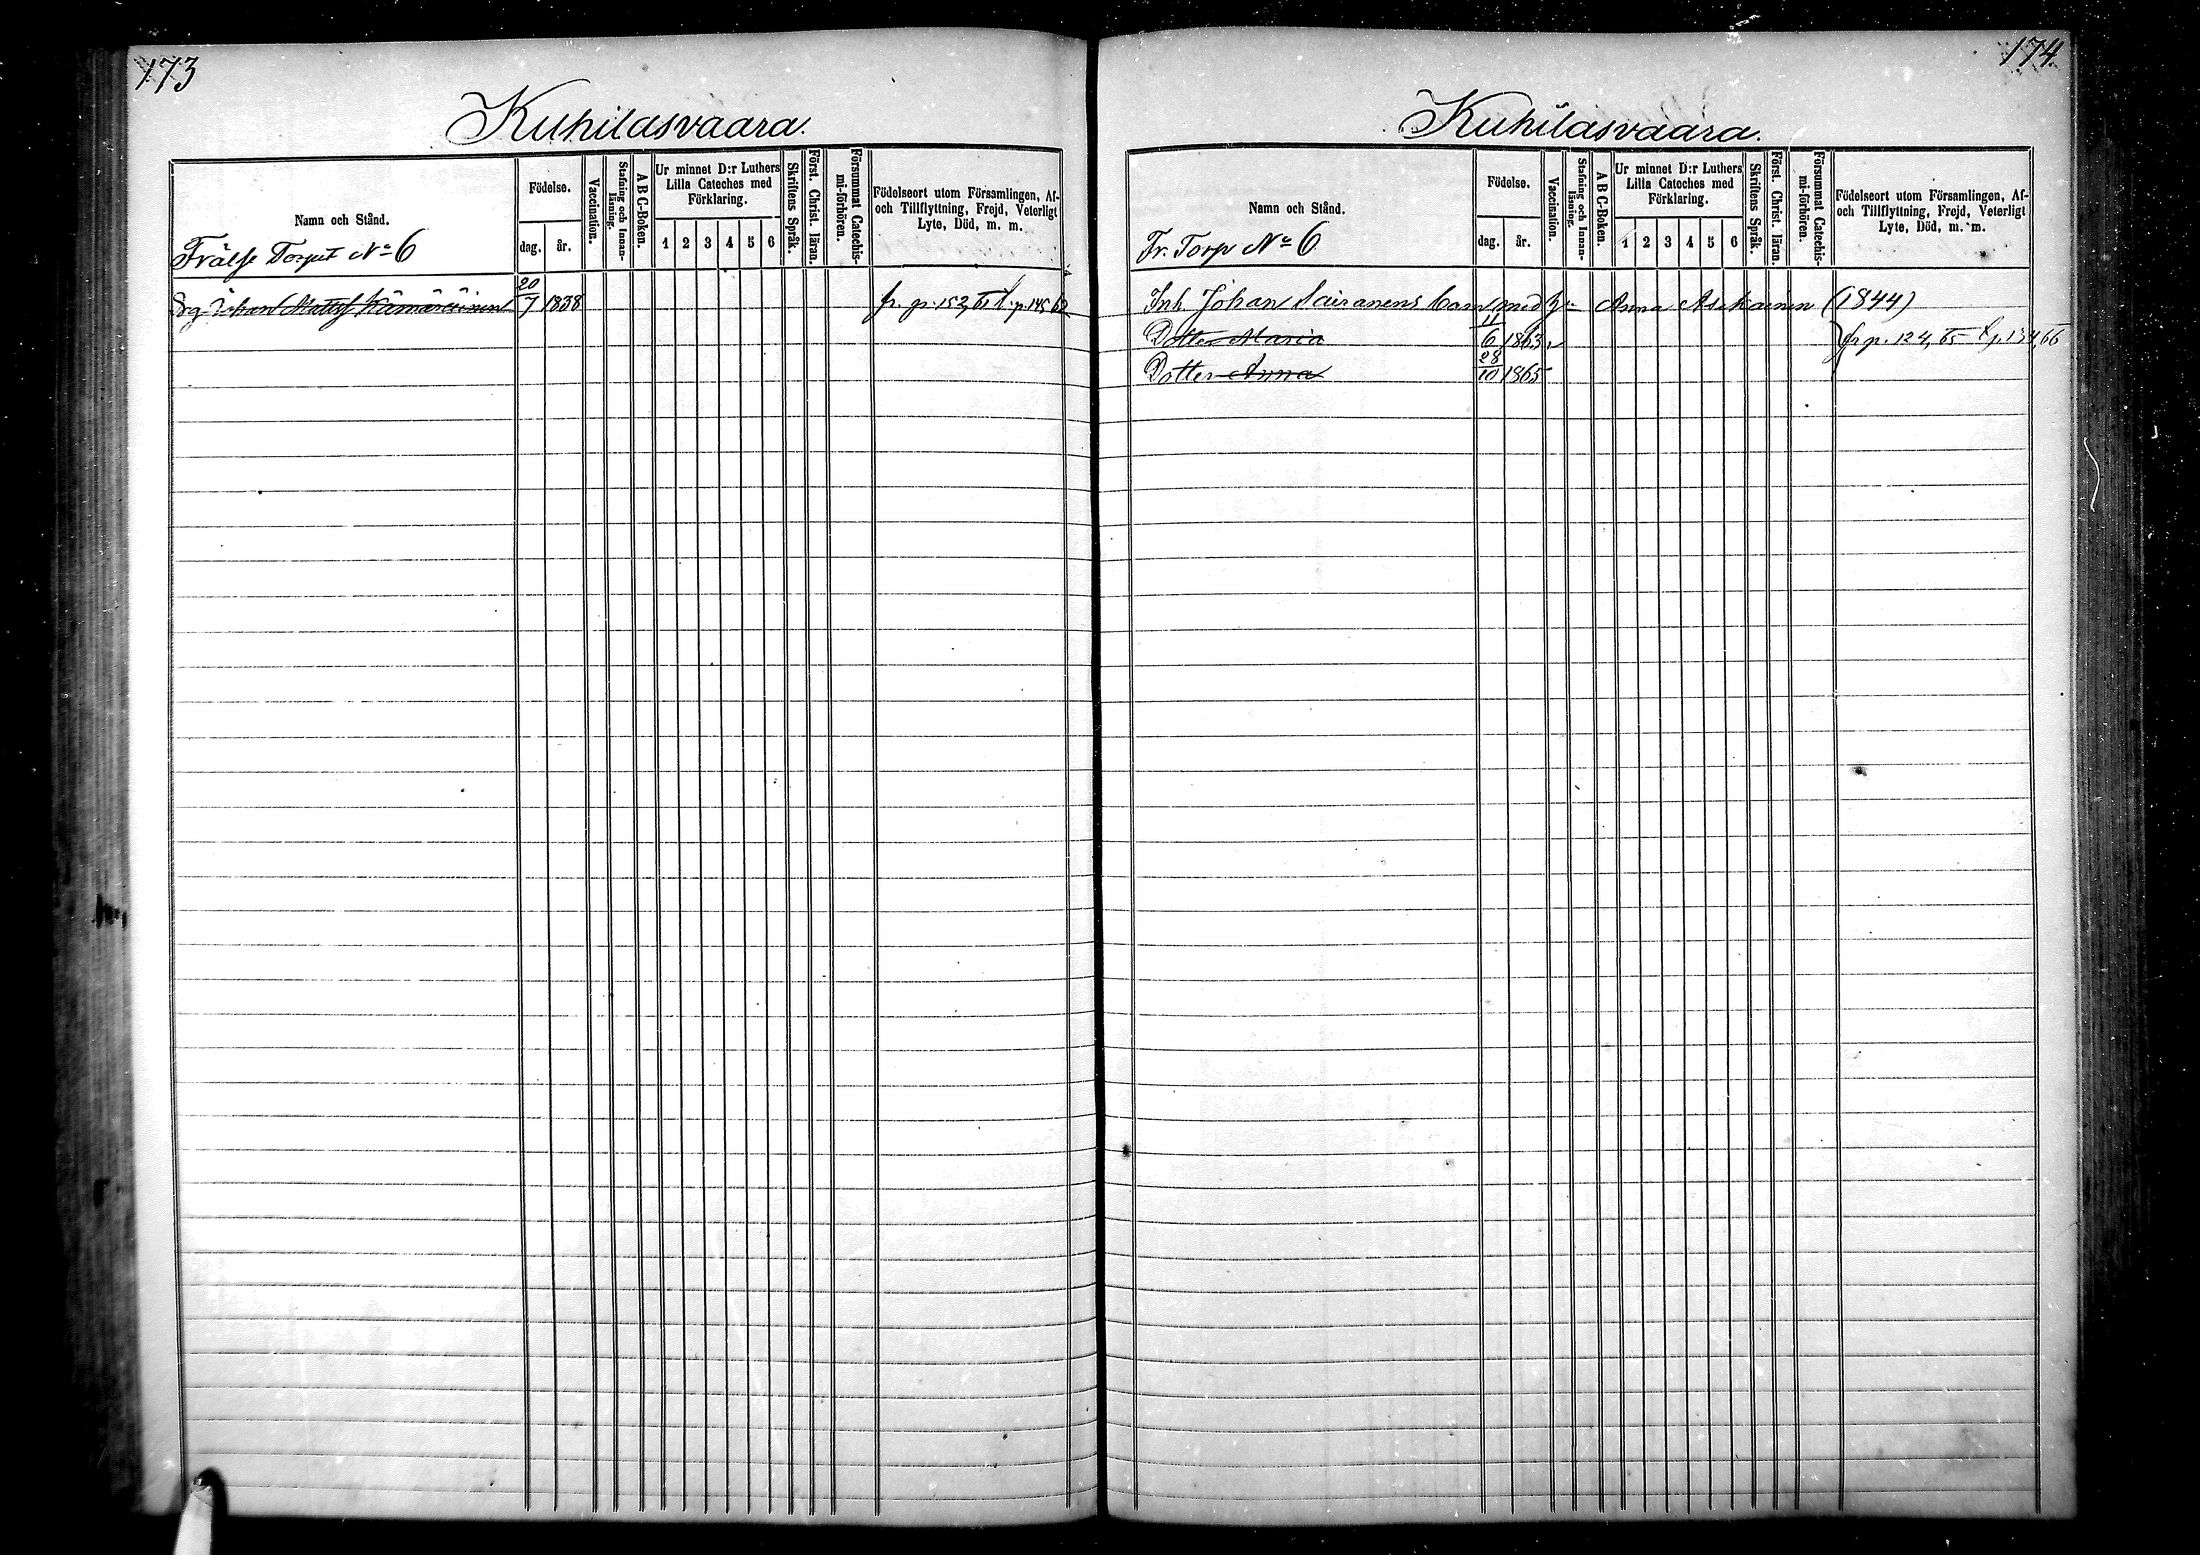 173
Kuhilasvaara.
Namn och Stånd.
Födelse.
dag.
år.
Vaccination.
Stafning och Innan-
läsning.
A B C-Boken.
Ur minnet D:r Luthers
Lilla Cateches med
Förklaring.
1 2 3 4 5 6
Skriftens Språk.
Först. Christ. läran.
Försummat Catechis-
mi-förhören.
Födelseort utom Församlingen, Af-
och Tillflyttning, Frejd, Veterligt
Lyte, Död, m. m.
Frälse Torpet No 6
20
Johan 7 1838 fr. p. 152, 61 t. p. 145, 62
174
Kuhilasvaara.
Namn och Stånd.
Födelse.
dag.
år.
Vaccination.
Stafning och Innan-
läsning.
A B C-Boken.
Ur minnet D:r Luthers
Lilla Cateches med
Förklaring.
1 2 3 4 5 6
Skriftens Språk.
Först. Christ. läran.
Försummat Catechis-
mi-förhören.
Födelseort utom Församlingen, Af-
och Tillflyttning, Frejd, Veterligt
Lyte, Död, m. m.
Fr. Torp No 6
Inh. Johan Sairanens barn med Anna Askainen (1844)
11
Dotter Maria 6 1863 fr p. 124, 65 t p. 134, 66
28
Dotter Anna 10 1865